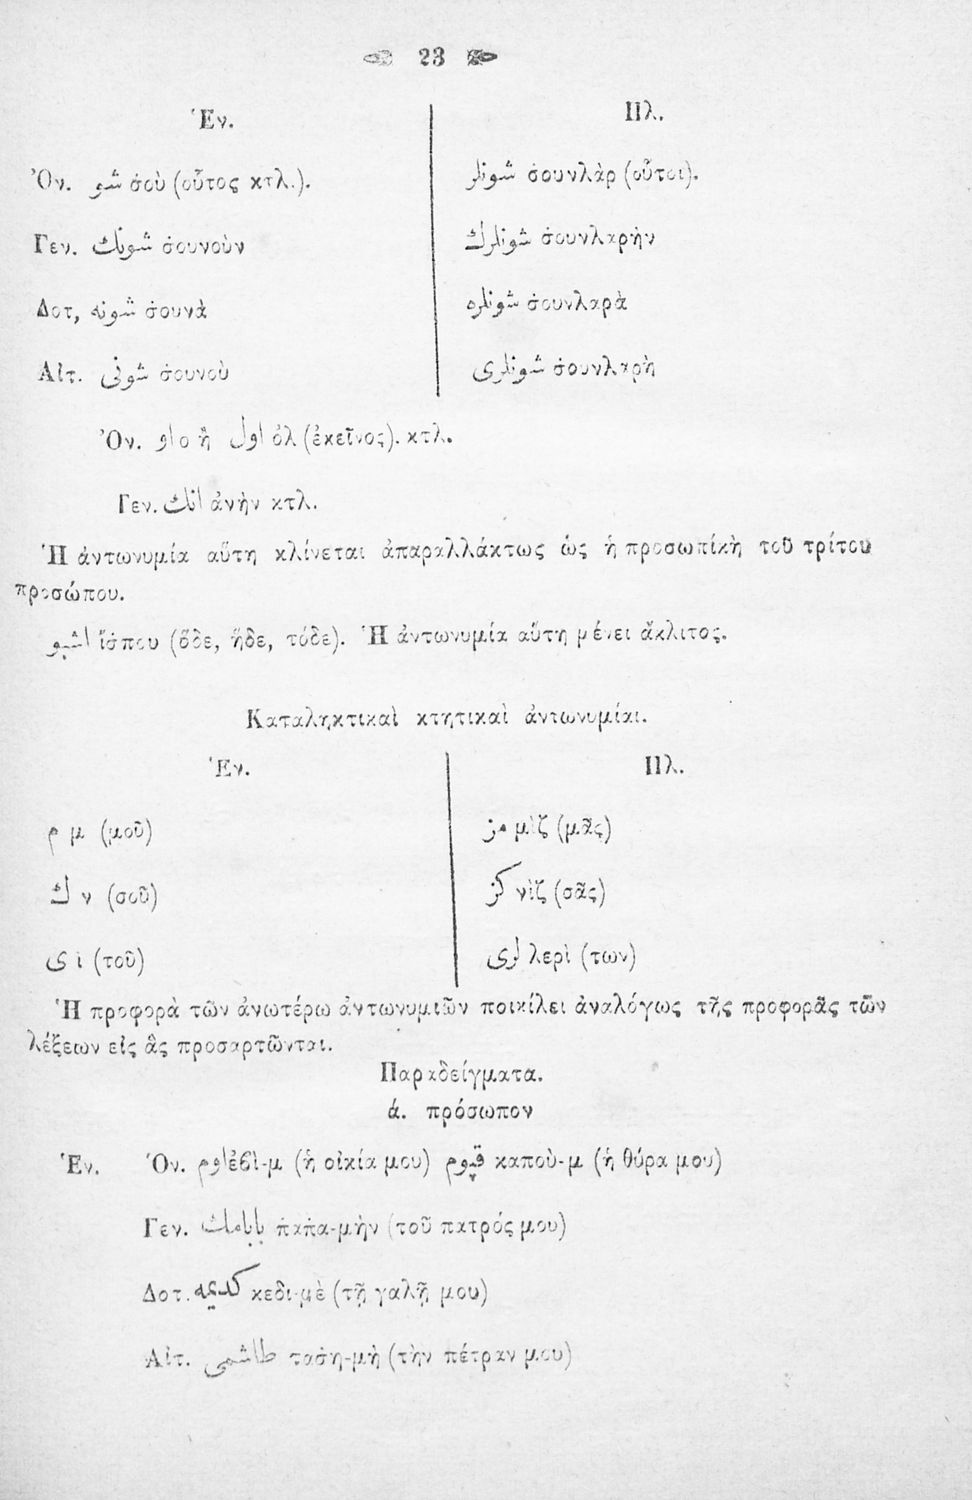 23
Ἑν. Πλ.
Ὀν. شو σ̇οὺ (οὗτος κτλ.). شونلر σ̇ουνλὰρ (οὗτοι).
Γεν. شونك σ̇ουνοὺν شونلرك σ̇ουνλαρὴν
Δοτ, شونه σ̇ουνὰ شونلره σ̇ουνλαρὰ
Αἰτ. شونى σ̇ουνοὺ شونلرى σ̇ουνλαρὴ
Ὀν. او ο ἢ اول ὀλ (ἐκεῖνος). κτλ.
Γεν. انك ἀνὴν κτλ.
Ἡ ἀντωνυμία αὕτη κλίνεται ἀπαραλλάκτως ὡς ἡ προσωπίκὴ τοῦ τρίτου
προσώπου.
اشبو ἴσ̇που (ὅδε, ἥδε, τόδε). Ἡ ἀντωνυμία αὕτη μένει ἄκλιτος.
Καταληκτικαὶ κτητικαὶ ἀντωνυμίαι.
Ἑν. Πλ.
م μ (μοῦ) مز μὶζ (μᾶς)
ك ν (σοῦ) كز νὶζ (σᾶς)
ى ὶ (τοῦ) لرى λερὶ (των)
Ἡ προφορὰ τῶν ἀνωτέρω ἀντωνυμιῶν ποικίλει ἀναλόγως τῆς προφορᾶς τῶν
λέξεων εἰς ἃς προσαρτῶνται.
Παραδείγματα.
ά. πρόσωπον
Ἑν. Ὀν. اوم ἐβὶ-μ (ἡ οἰκία μου) قپوم καποὺ-μ (ἡ θύρα μου)
Γεν. پاپامك π̇απ̇α-μὴν (τοῦ πατρός μου)
Δοτ. كديمه κεδι-μὲ (τῇ γαλῇ μου)
Αἰτ. طاشمى τασ̇η-μὴ (τὴν πέτραν μου)